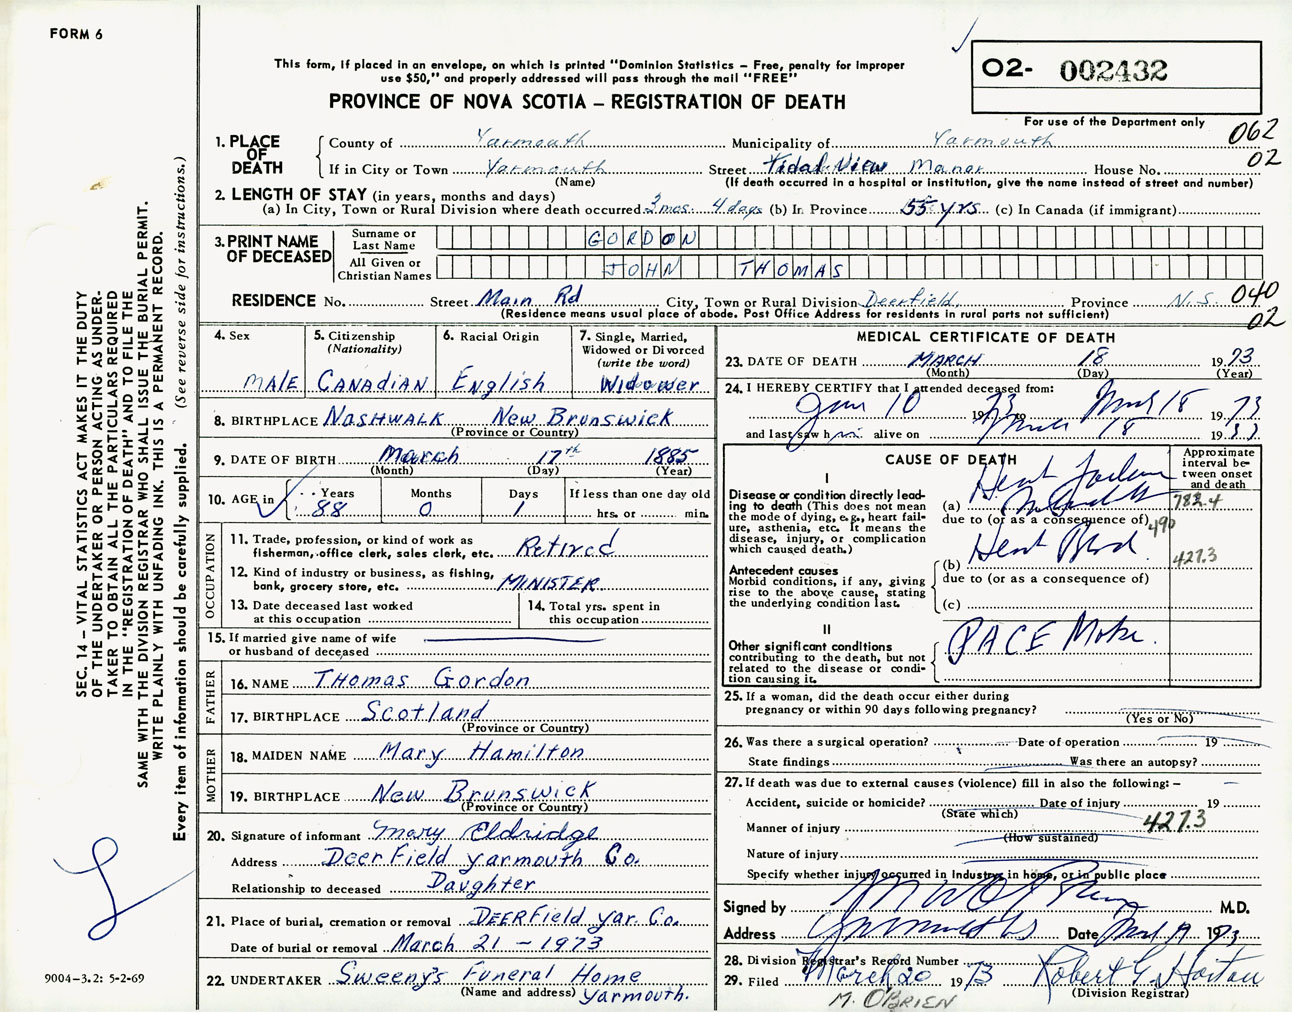 FORM 6
This form, if placed in an envelope, on which is printed "Dominion Statistics – Free, penalty for improper
use $50," and properly addressed will pass through the mail "FREE"
PROVINCE OF NOVA SCOTIA – REGISTRATION OF DEATH
02- 002432
For use of the Department only
062
02
1. PLACE OF DEATH County of Yarmouth Municipality of Yarmouth
If in City or Town Yarmouth Street Tidal View Manor House No.
(Name) (If death occurred in a hospital or institution, give the name instead of street and number)
2. LENGTH OF STAY (in years, months and days)
(a) In City, Town or Rural Division where death occurred 2 mos. 4 days (b) In Province 55 yrs (c) In Canada (if immigrant)
3. PRINT NAME OF DECEASED Surname or Last Name GORDON
All Given or Christian Names JOHN THOMAS
RESIDENCE No. Street Main Rd City, Town or Rural Division Deerfield Province N.S. 040
(Residence means usual place of abode. Post Office Address for residents in rural parts not sufficient) 02
4. Sex MALE
5. Citizenship (Nationality) CANADIAN
6. Racial Origin English
7. Single, Married, Widowed or Divorced (write the word) Widower
8. BIRTHPLACE NASHWALK New Brunswick
(Province or Country)
9. DATE OF BIRTH March 17th 1885
(Month) (Day) (Year)
10. AGE in Years 88 Months 0 Days 1 If less than one day old hrs. or min.
OCCUPATION
11. Trade, profession, or kind of work as fisherman, office clerk, sales clerk, etc. Retired
12. Kind of industry or business, as fishing, bank, grocery store, etc. MINISTER
13. Date deceased last worked at this occupation
14. Total yrs. spent in this occupation
15. If married give name of wife or husband of deceased
FATHER
16. NAME Thomas Gordon
17. BIRTHPLACE Scotland
(Province or Country)
MOTHER
18. MAIDEN NAME Mary Hamilton
19. BIRTHPLACE New Brunswick
(Province or Country)
20. Signature of informant Mary Eldridge
Address Deerfield Yarmouth Co.
Relationship to deceased Daughter
21. Place of burial, cremation or removal DEERfield Yar. Co.
Date of burial or removal March 21 – 1973
22. UNDERTAKER Sweeny's Funeral Home
(Name and address) Yarmouth.
MEDICAL CERTIFICATE OF DEATH
23. DATE OF DEATH MARCH 18 1973
(Month) (Day) (Year)
24. I HEREBY CERTIFY that I attended deceased from:
Jan 10 1973 to March 18 1973
and last saw him alive on March 18 1973
CAUSE OF DEATH
Approximate interval between onset and death
I
Disease or condition directly leading to death (This does not mean the mode of dying, e.g., heart failure, asthenia, etc. It means the disease, injury, or complication which caused death.)
(a) Heart Failure 782.4
due to (or as a consequence of) 490
(b) Heart Block 427.3
Antecedent causes
Morbid conditions, if any, giving rise to the above cause, stating the underlying condition last.
due to (or as a consequence of)
(c)
II
Other significant conditions contributing to the death, but not related to the disease or condition causing it.
PACE Maker.
25. If a woman, did the death occur either during
pregnancy or within 90 days following pregnancy?
(Yes or No)
26. Was there a surgical operation? Date of operation 19
State findings Was there an autopsy?
27. If death was due to external causes (violence) fill in also the following: –
Accident, suicide or homicide? Date of injury 19
(State which)
Manner of injury 427.3
(How sustained)
Nature of injury
Specify whether injury occurred in Industry, in home, or in public place
Signed by M.D.
Address Yarmouth NS Date Mar 19 1973
28. Division Registrar's Record Number
29. Filed March 20 1973 Robert G. Horton
(Division Registrar)
M. O'BRIEN
SEC. 14 – VITAL STATISTICS ACT MAKES IT THE DUTY
OF THE UNDERTAKER OR PERSON ACTING AS UNDER-
TAKER TO OBTAIN ALL THE PARTICULARS REQUIRED
IN THE "REGISTRATION OF DEATH" AND TO FILE THE
SAME WITH THE DIVISION REGISTRAR WHO SHALL ISSUE THE BURIAL PERMIT.
WRITE PLAINLY WITH UNFADING INK. THIS IS A PERMANENT RECORD.
Every item of information should be carefully supplied. (See reverse side for instructions.)
9004-3.2: 5-2-69